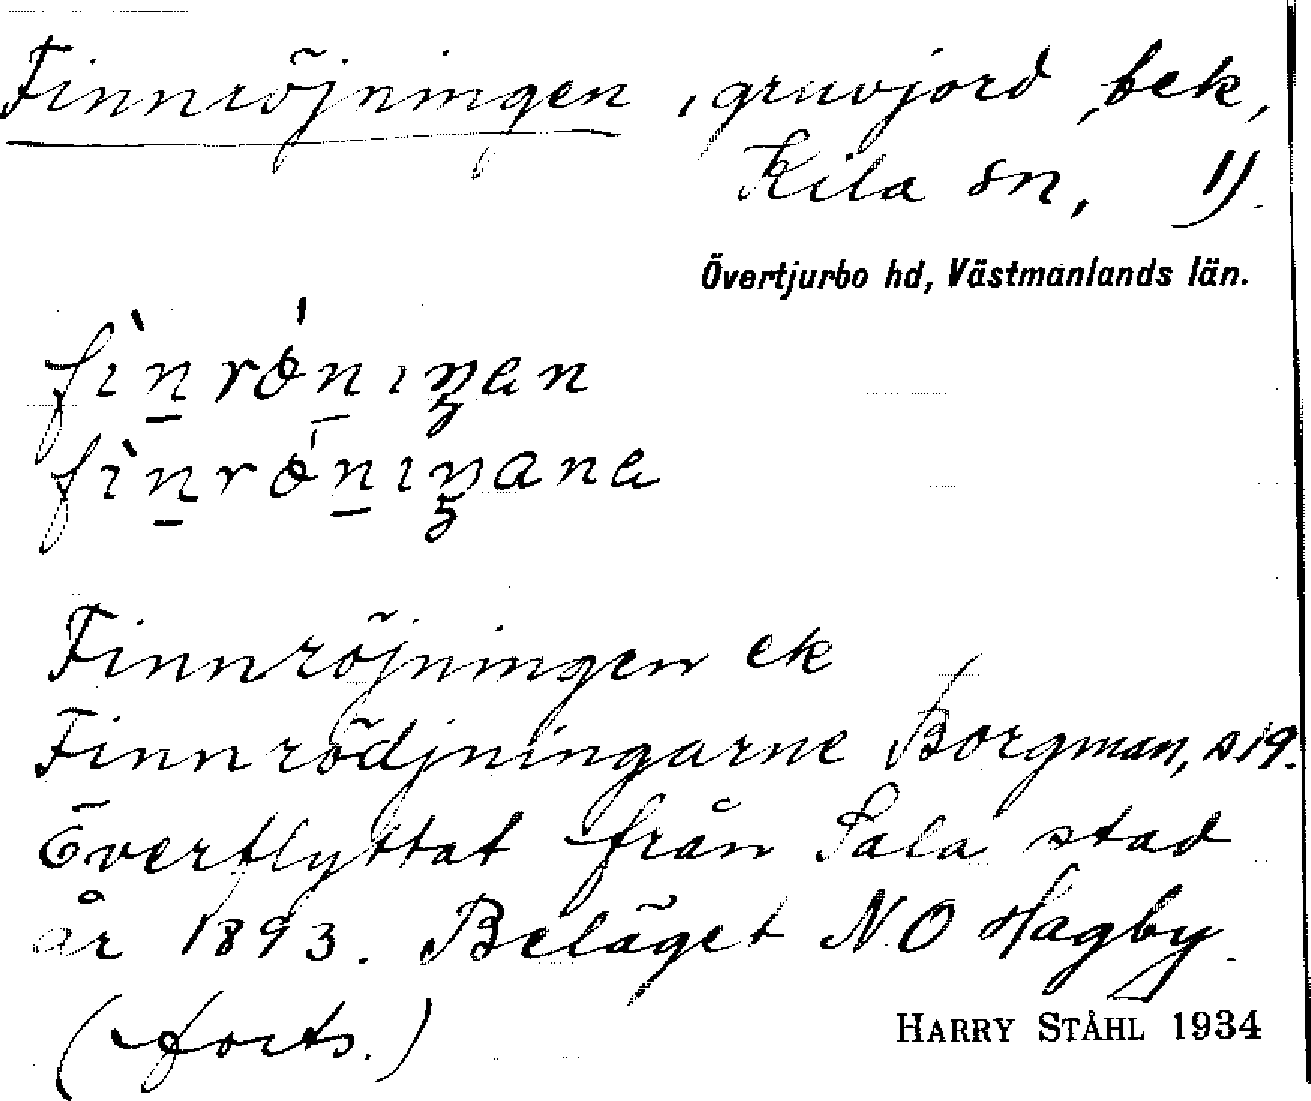 Finnröjningen, gruvjord, bek,
Kila sn, 1).
Övertjurbo hd, Västmanlands län.
Finnröjningen ek
Finnrödjningarne Borgman, s 19.
Överflyttat från Sala stad
år 1893. Beläget N.O Hagby.
(forts.)
HARRY STÅHL 1934